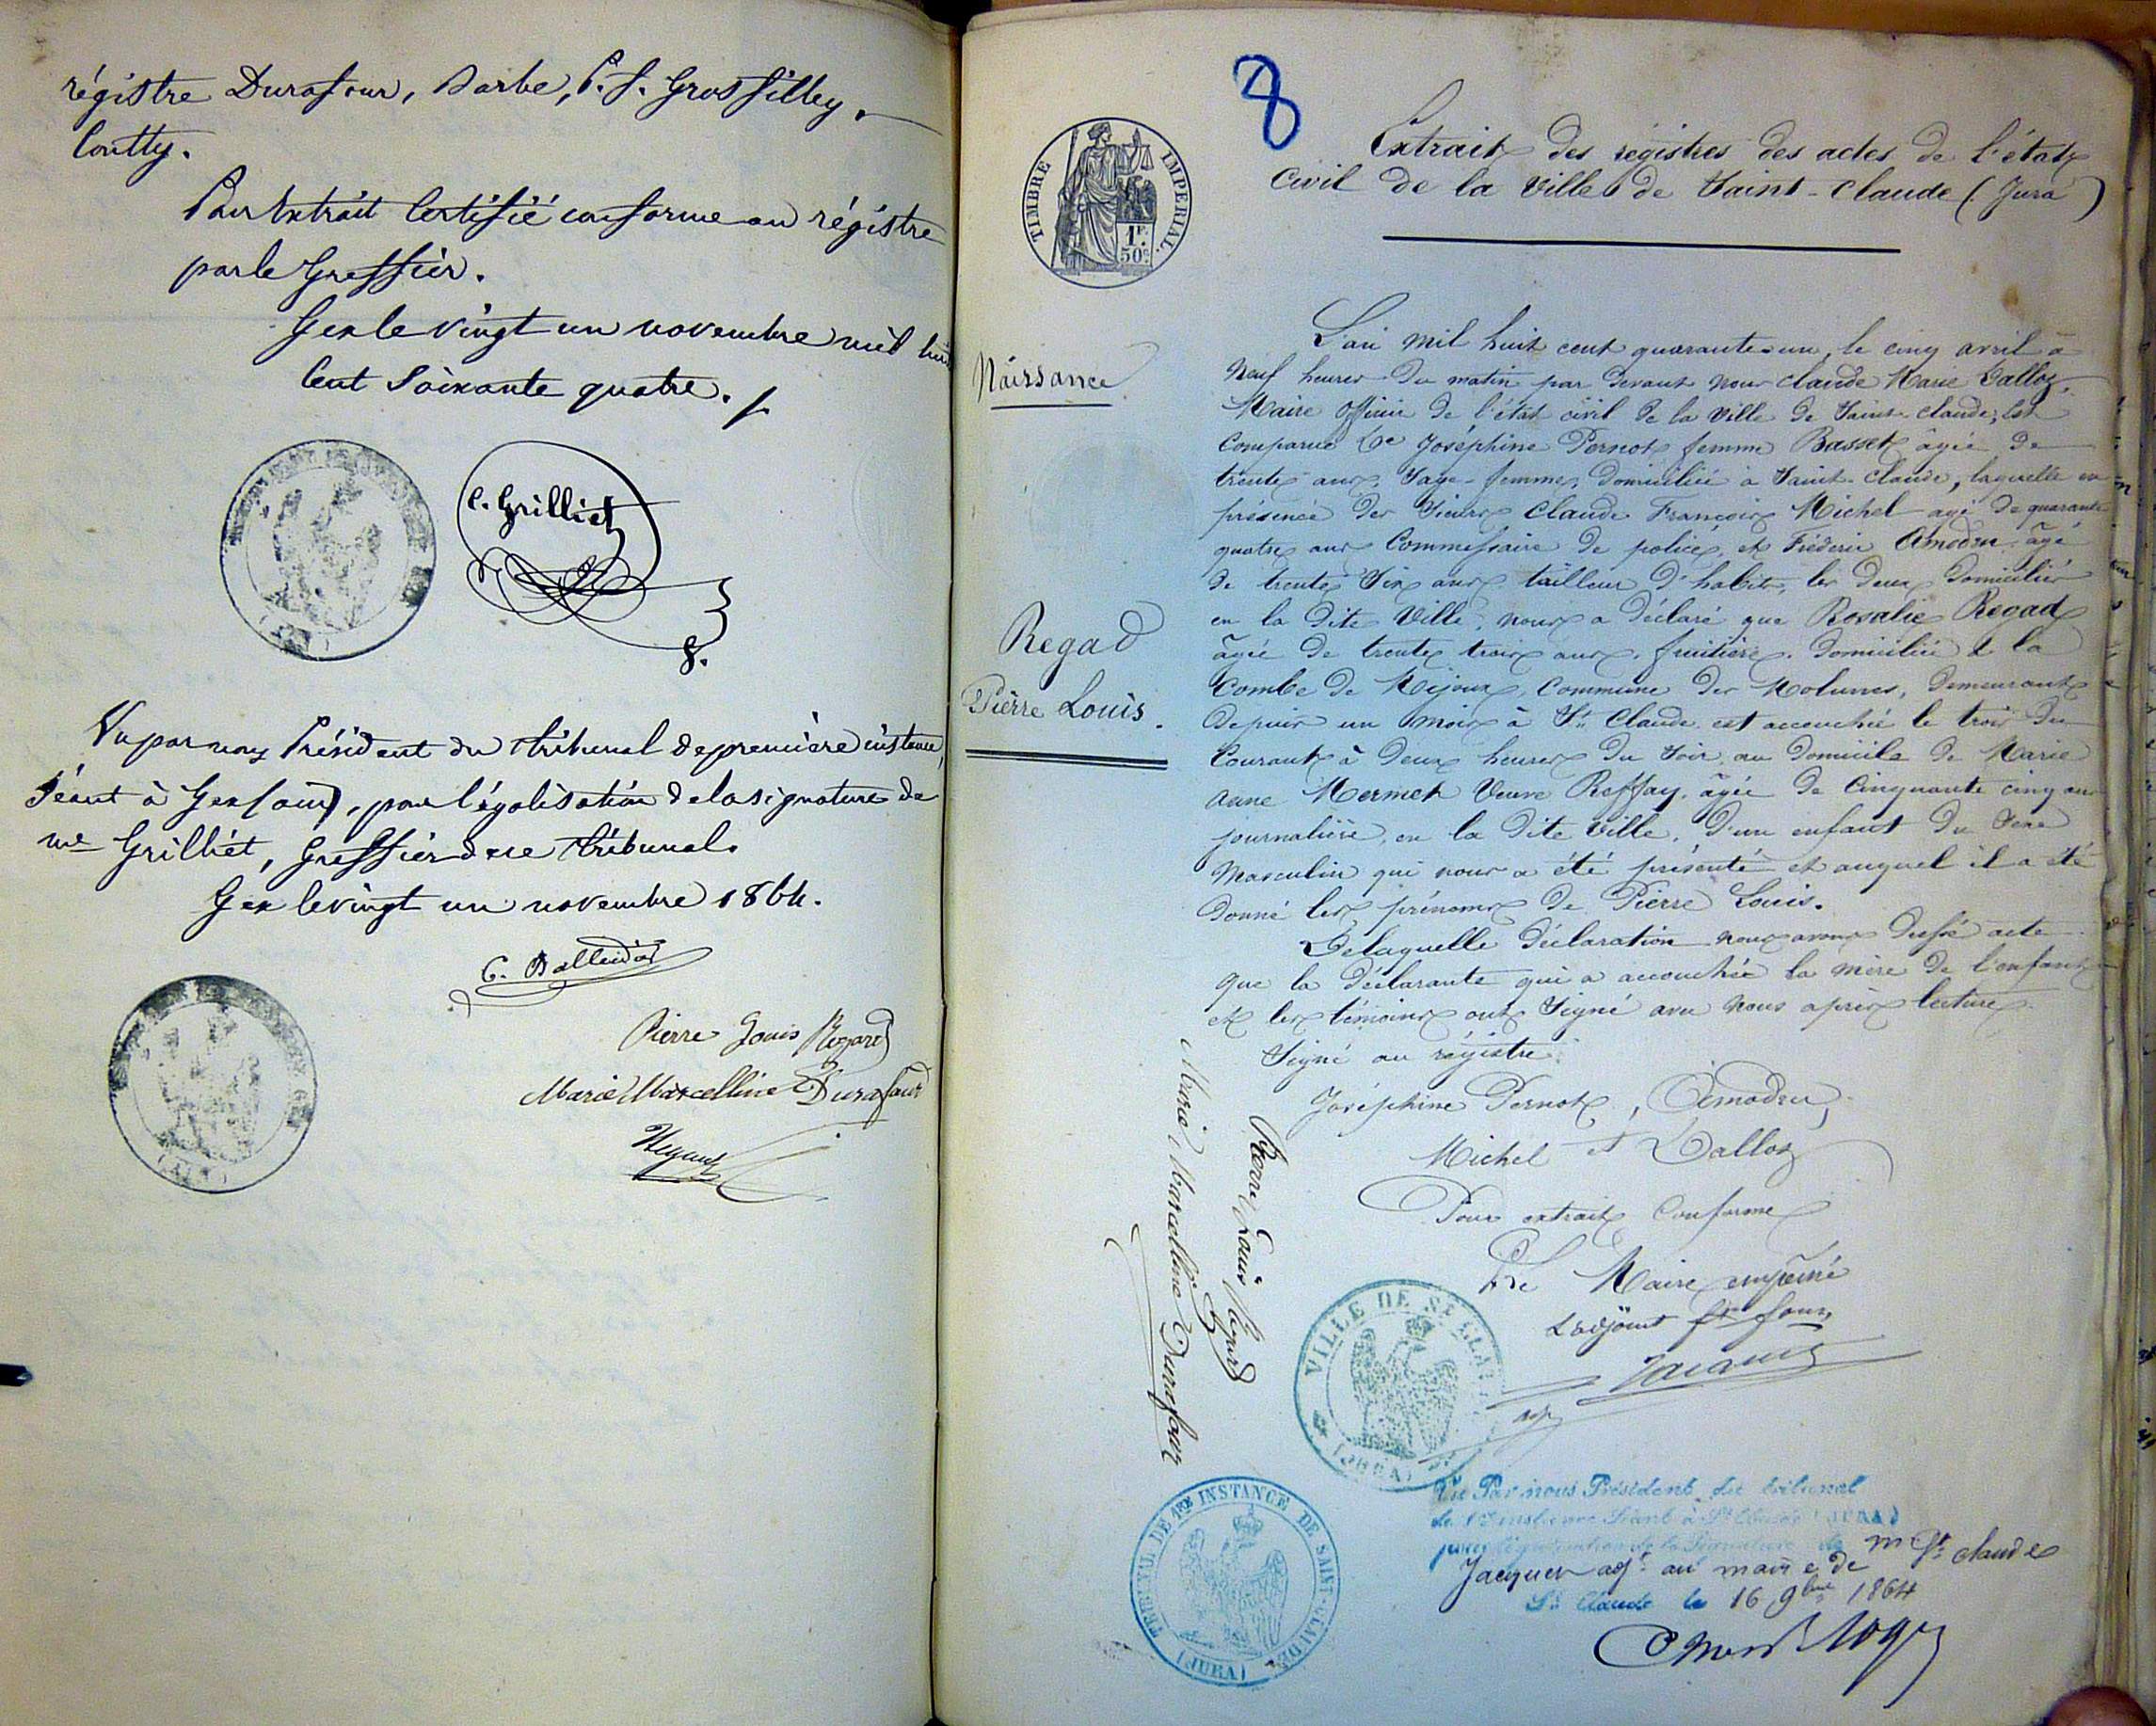 régistre Durafour, Barbe, P. J. Grosfilley.
Coutty.
Pour Extrait Certifié conforme au régistre
par le Greffier.
Gex le vingt un novembre mil huit
Cent Soixante quatre.
C. Grilliet
g.
Vu par nous Président du tribunal de première instance,
Séant à Gex (ain), pour légalisation de la signature de
me Grilliet, Greffier de ce tribunal.
Gex le vingt un novembre 1864.
Pierre Louis Regard
Marie Marcelline Durafour
8
TIMBRE IMPERIAL.
1F.
50c.
Extrait des régistres des actes de l'état
Civil de la Ville de Saint-Claude (Jura)
Naissance
Regad
Pierre Louis.
L'an mil huit cent quarante-un, le cinq avril à
Neuf heures du matin par devant nous Claude Marie Dalloz,
Maire officier de l'état civil de la Ville de Saint-Claude, Est
Comparue De Joséphine Pernot femme Basset âgée de
trente ans, Sage-femme, Domiciliée à Saint-Claude, laquelle en
présence des Sieurs Claude François Michel agé de quarante
quatre ans Commissaire de police, et Fréderic Amodru âgé
de trente Six ans tailleur d'habits, les deux Domiciliés
en la dite Ville, nous a déclaré que Rosalie Regad
âgée de trente trois ans, fruitière, Domiciliée à la
Combe de Mijoux, Commune des Molunes, demeurant
depuis un mois à St Claude est accouchée le trois du
Courant à deux heures du Soir au domicile de Marie
Anne Mermet Veuve Reffay, âgée de Cinquante cinq ans
journalière, en la dite Ville, d'un enfant du Sexe
Masculin qui nous a été présenté et auquel il a été
donné les prénoms de Pierre Louis.
De laquelle déclaration nous avons dressé acte
que la déclarante qui a accouchée la mère de l'enfant
et les témoins ont Signé avec nous après lecture
Signé au régistre:
Joséphine Pernot, Amodru,
Michel et Dalloz
Pour extrait Conforme
Le Maire empêché
L'adjoint
Jacquen
adj
Pierre Louis Regard
Marie Marcelline Durafour
VILLE DE ST CLAUDE
(JURA)
TRIBUNAL DE 1RE INSTANCE DE SAINT-CLAUDE
(JURA)
Vu Par nous Président du tribunal
de 1re instance Séant à St Claude (JURA)
pour légalisation de la Signature de m St Claude
Jacquen adjt au maire de
St Claude le 16 9bre 1864